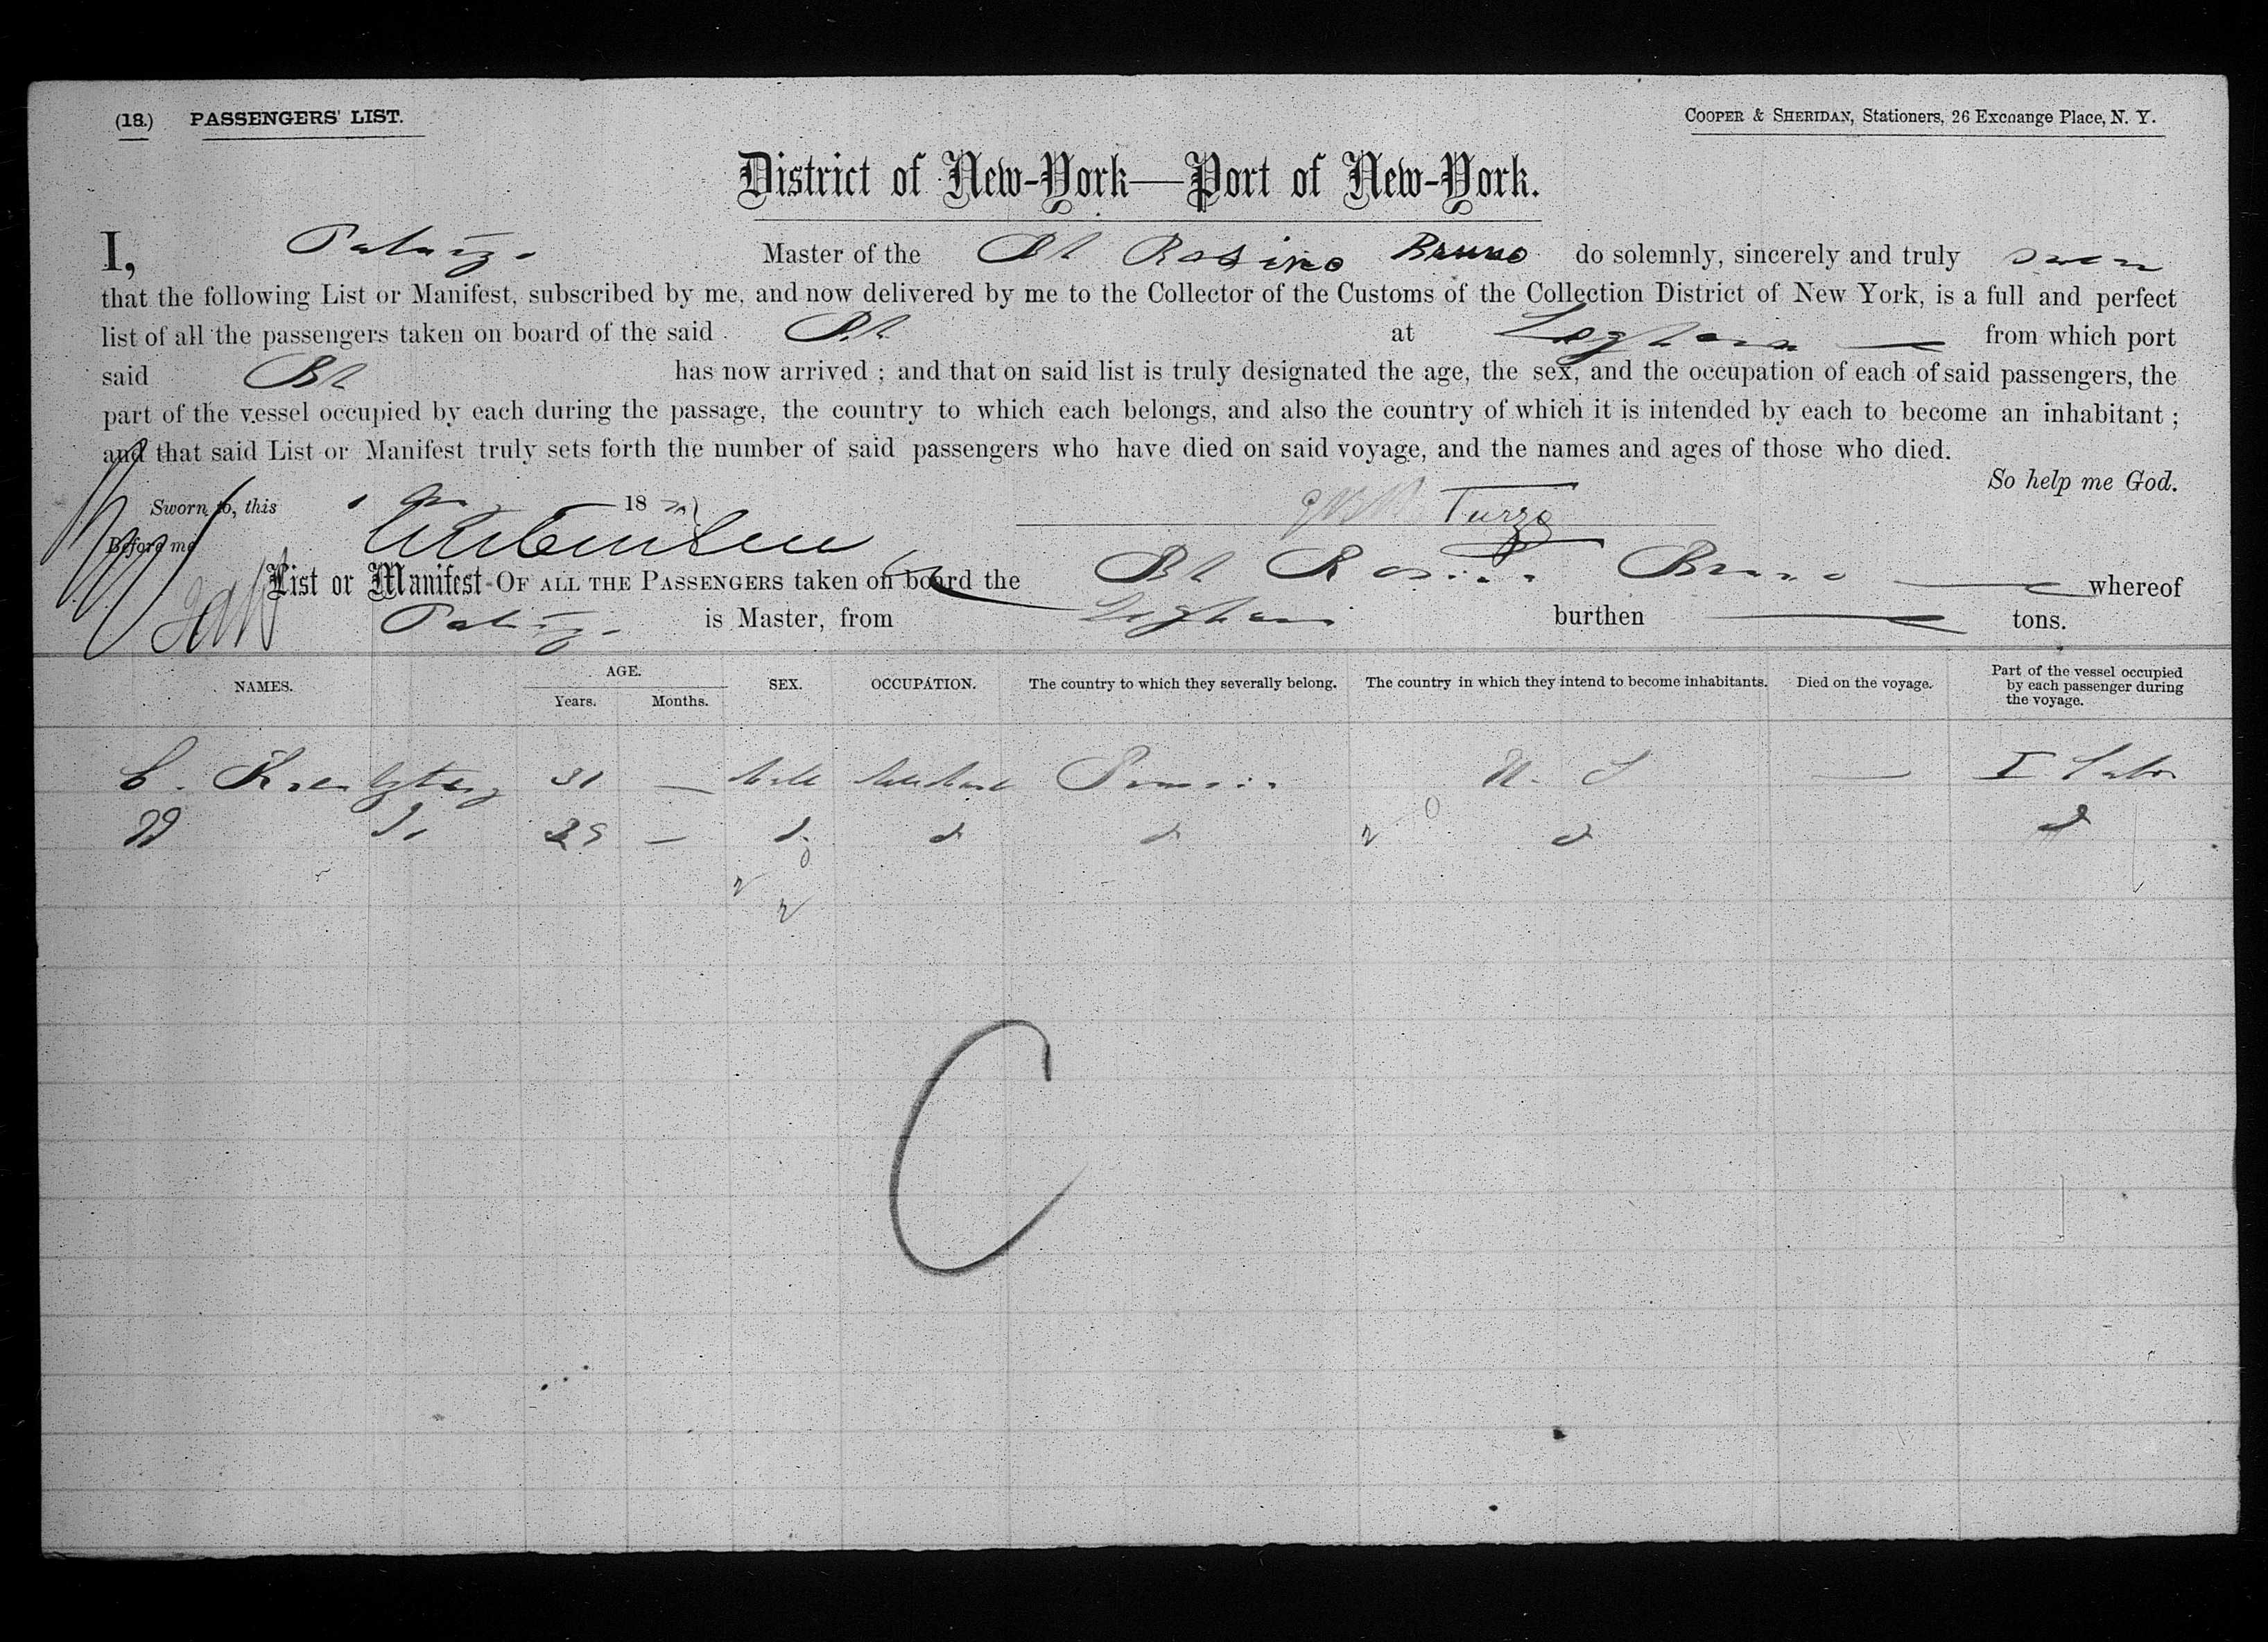 (18.) PASSENGERS' LIST.
COOPER & SHERIDAN, Stationers, 26 Exchange Place, N. Y.
District of New-York—Port of New-York.
I, Master of the Bk Rosino Bruno do solemnly, sincerely and truly swear
that the following List or Manifest, subscribed by me, and now delivered by me to the Collector of the Customs of the Collection District of New York, is a full and perfect
list of all the passengers taken on board of the said Bk at Leghorn from which port
said Bk has now arrived ; and that on said list is truly designated the age, the sex, and the occupation of each of said passengers, the
part of the vessel occupied by each during the passage, the country to which each belongs, and also the country of which it is intended by each to become an inhabitant ;
and that said List or Manifest truly sets forth the number of said passengers who have died on said voyage, and the names and ages of those who died.
So help me God.
Sworn to, this 18
Before me
List or Manifest OF ALL THE PASSENGERS taken on board the Bk Rosino Bruno whereof
is Master, from Leghorn burthen — tons.
NAMES. AGE. Years. Months. SEX. OCCUPATION. The country to which they severally belong. The country in which they intend to become inhabitants. Died on the voyage. Part of the vessel occupied by each passenger during the voyage.
C. 31 — Male Prussia U. S — I
29 — d d d d d
C